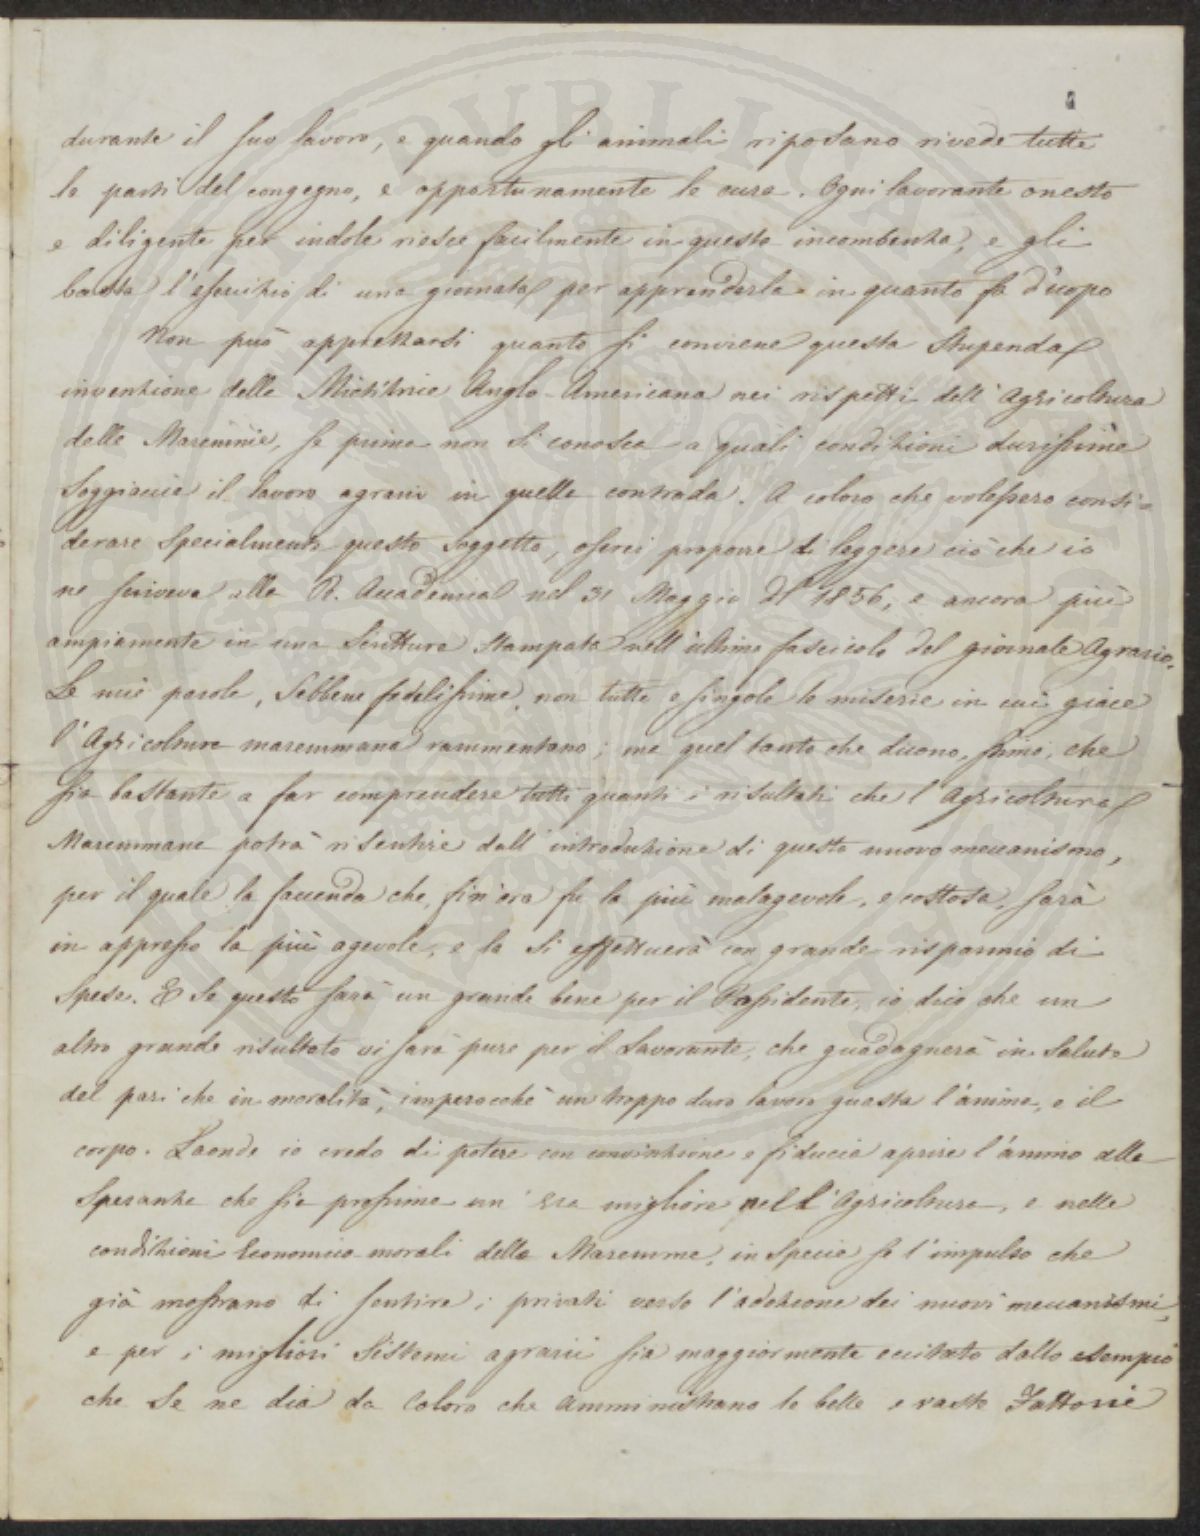 durante il suo lavoro, e quando gli animali riposano rivede tutte
le parti del congegno, e opportunamente le cura. Ogni lavorante onesto
e diligente per indole riesce facilmente in questa incombenza, e gli
basta l'esercizio di una giornata per apprenderla in quanto fa d'uopo
Non può apprezzarsi quanto si conviene questa stupenda
invenzione della Mietitrice Anglo-Americana nei rispetti dell'Agricoltura
delle Maremme, se prima non si conosca a quali condizioni durissime
soggiaccia il lavoro agrario in quelle contrada. A coloro che volessero consi-
derare specialmente questo soggetto, oserei proporre di leggere ciò che io
ne scriveva alla R. Accademia nel 31 Maggio del 1856, e ancora più
ampiamente in una scrittura stampata nell'ultimo fascicolo del giornale Agrario.
Le mie parole, sebbene fedelissime, non tutte e singole le miserie in cui giace
l'Agricoltura maremmana rammentano; ma quel tanto che dicono, stimo, che
sia bastante a far comprendere tutti quanti i risultati che l'Agricoltura
Maremmana potrà risentire dall'introduzione di questo nuovo meccanismo,
per il quale la faccenda che, fin'ora fu la più malagevole, e costosa, sarà
in appresso la più agevole, e la si effettuerà con grande risparmio di
spese. E se questo sarà un grande bene per il Possidente, io dico che un
altro grande risultato vi sarà pure per il Lavorante, che guadagnerà in salute
del pari che in moralità, imperocchè un troppo duro lavoro guasta l'anima, e il
corpo. Laonde io credo di potere con convinzione e fiducia aprire l'animo alla
speranza che sia prossima un'Era migliore nell'Agricoltura, e nelle
condizioni Economico morali della Maremma, in specie se l'impulso che
già mostrano di sentire i privati verso l'adozione dei nuovi meccanismi,
e per i migliori sistemi agrarii sia maggiormente eccitato dallo esempio
che se ne dia da Coloro che Amministrano le belle e vaste Fattorie